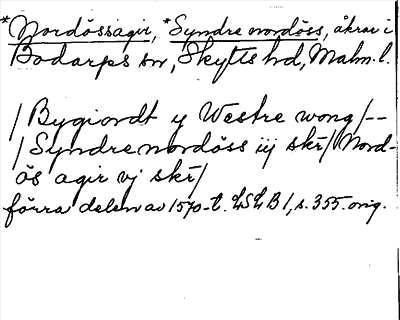 *Nordössagir, *Syndre nordöss, åkrar i
Bodarps sn, Skytts hd, Malm. l.
/ Bygiordt y Westre wong /--
/ Syndre nordöss iij skr/ Nord-
ös agir vj skr/
förra delen av 1570-t. LSLB 1, s. 355. orig.